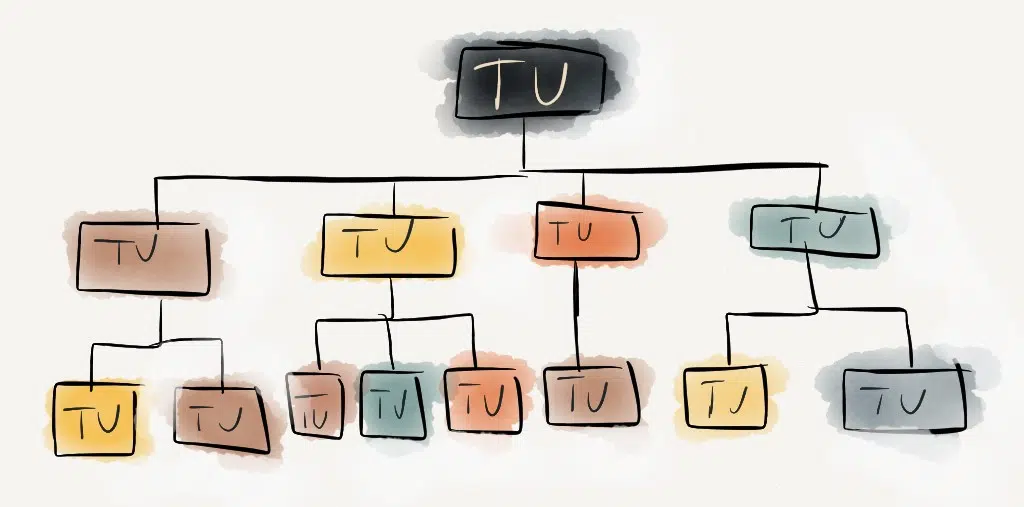 TU
TU TU TU TU
TU TU TU TU TU TU TU TU